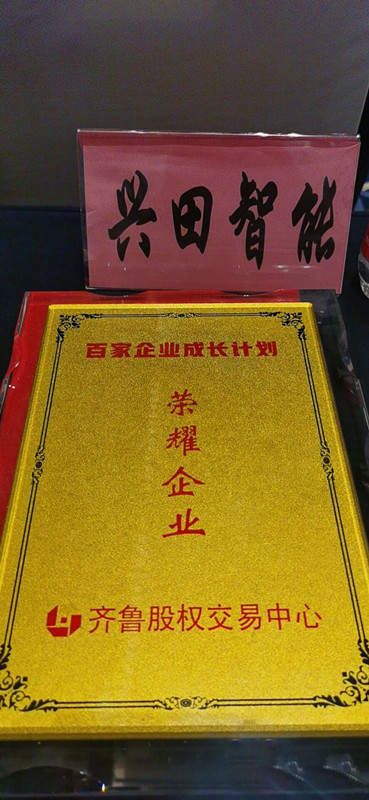 兴田智能
百家企业成长计划
荣耀企业
齐鲁股权交易中心